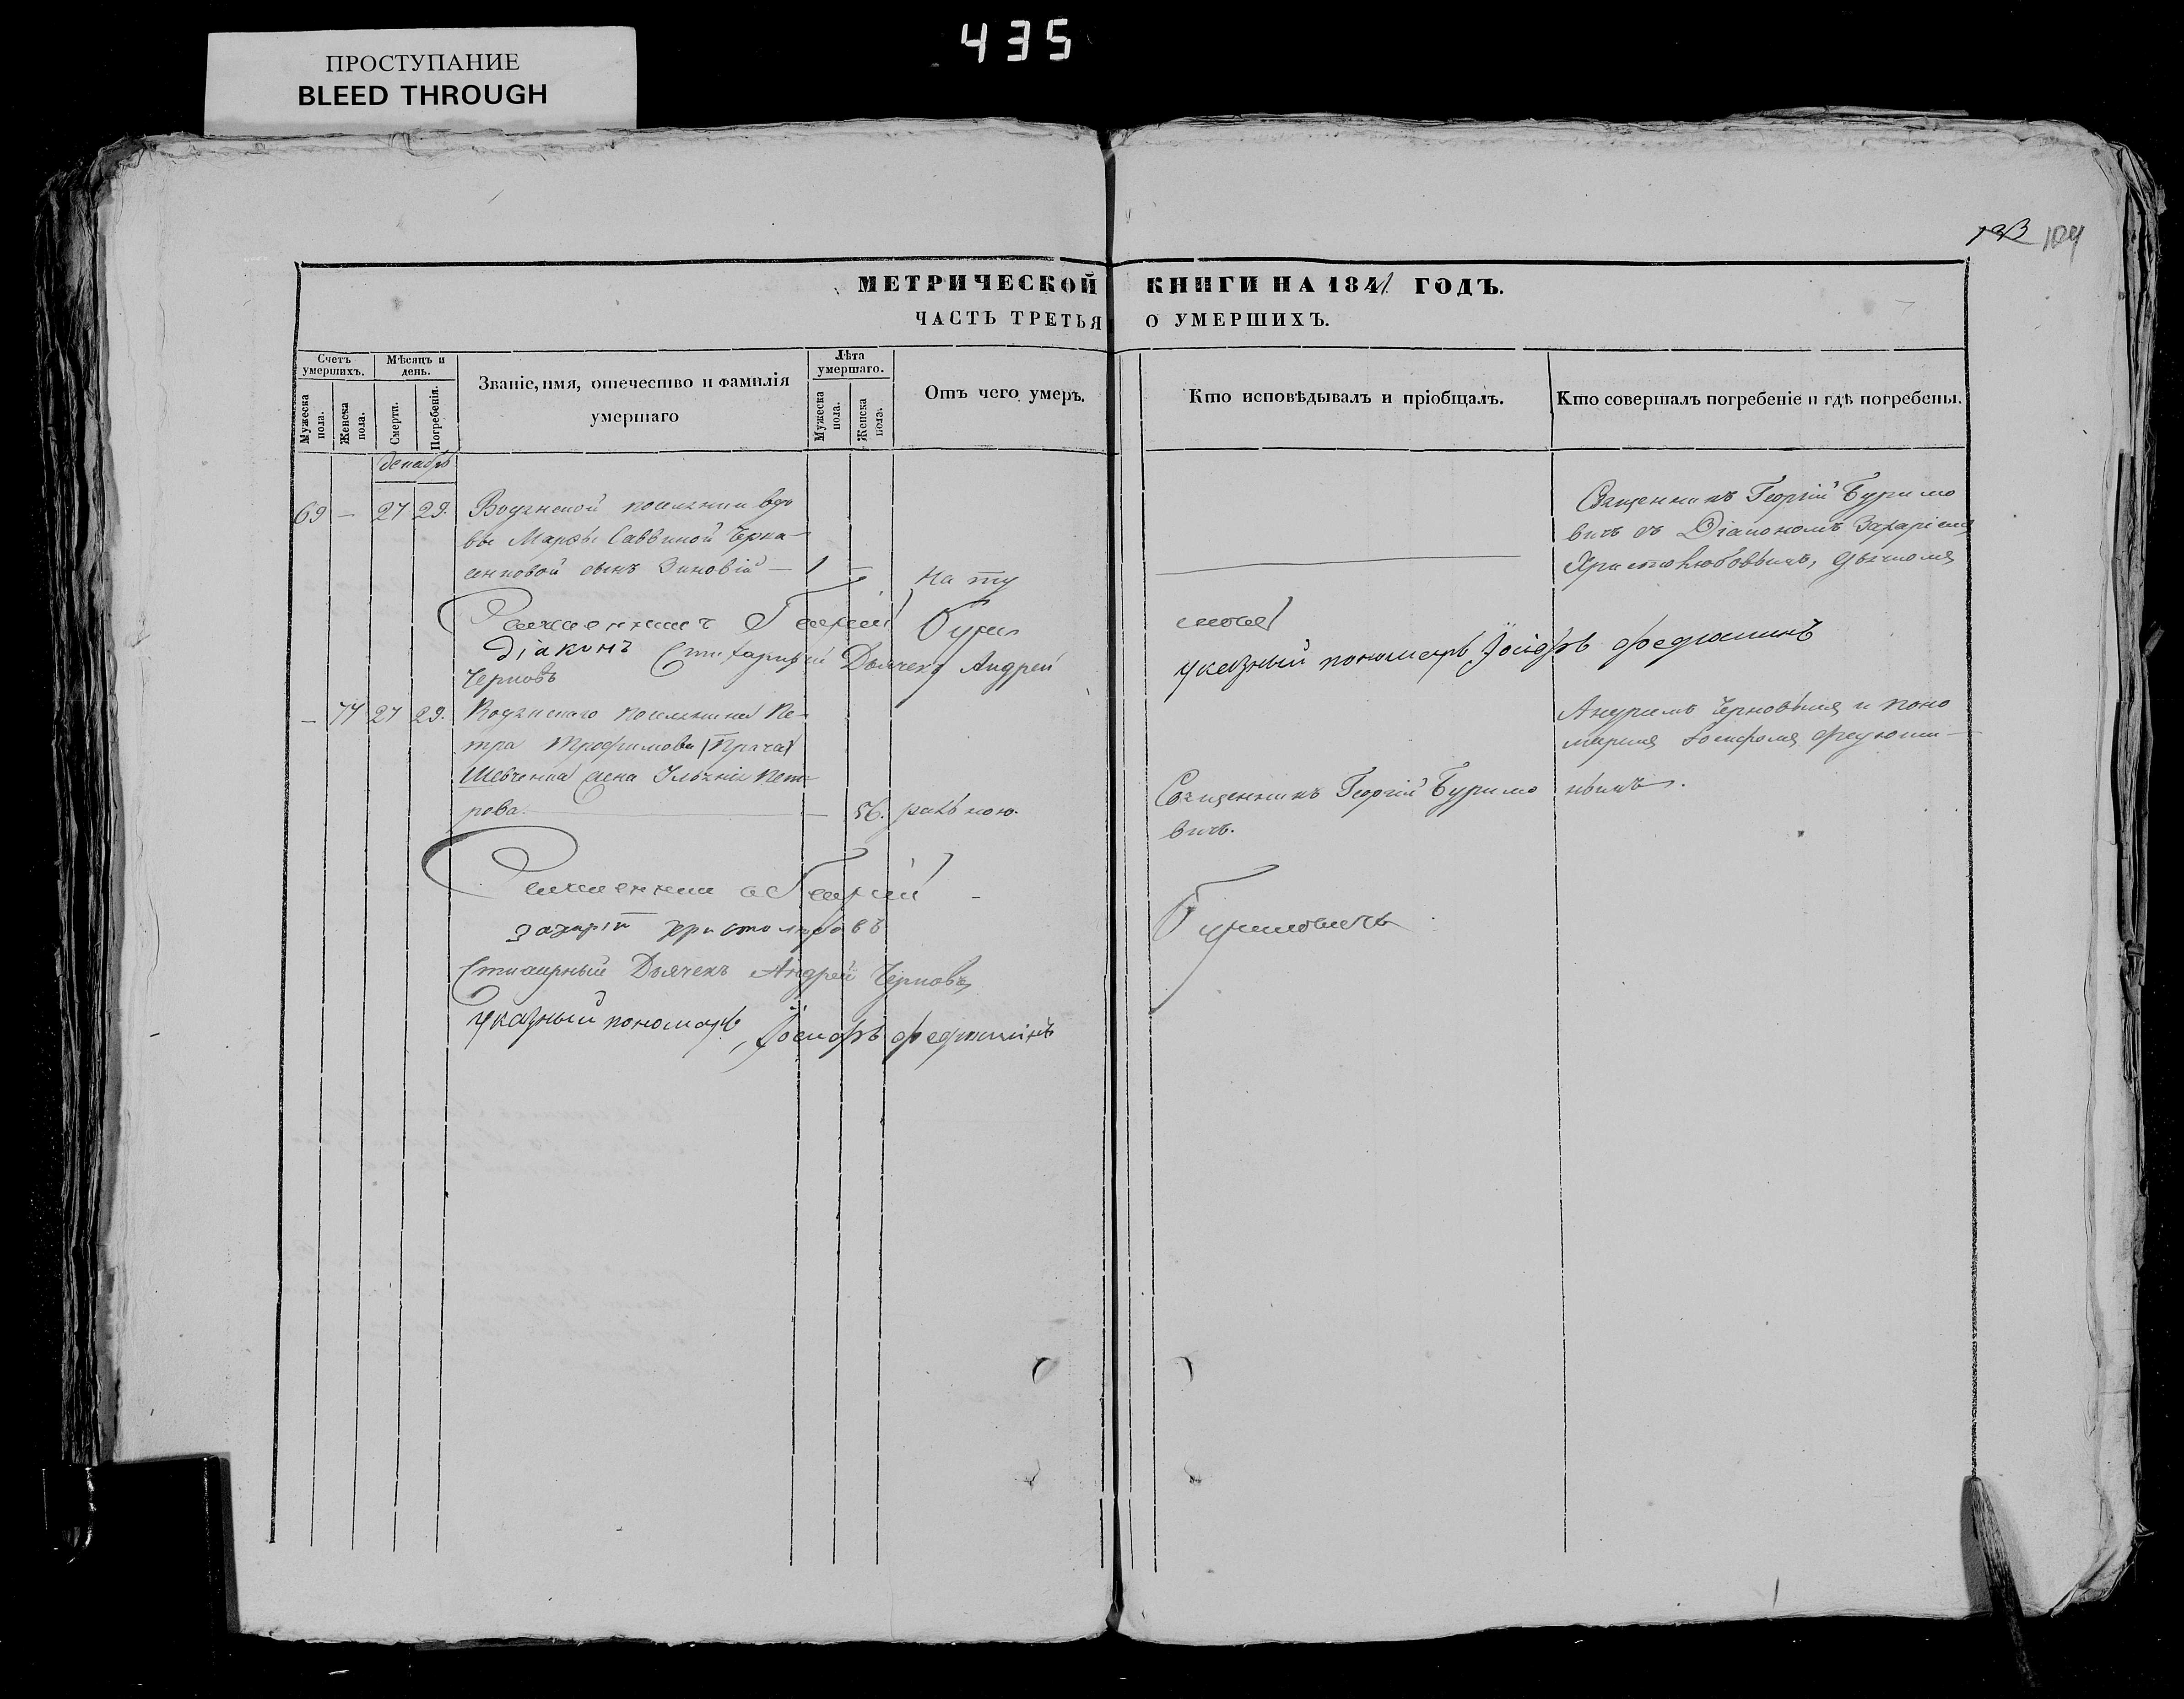 435
ПРОСТУПАНИЕ
BLEED THROUGH
104
МЕТРИЧЕСКОЙ КНИГИ НА 1841 ГОДЪ.
ЧАСТЬ ТРЕТЬЯ О УМЕРШИХЪ.
Счетъ умершихъ.
Мужеска пола.
Женска пола.
Мѣсяцъ и день.
Смерти.
Погребенія.
Званіе, имя, отечество и фамилія умершаго
Лѣта умершаго.
Мужеска пола.
Женска пола.
Отъ чего умеръ.
Кто исповѣдывалъ и пріобщалъ.
Кто совершалъ погребеніе и гдѣ погребены.
декабрь
69 — 27 29. вдо
вы Марфы Саввиной Черка-
сенковой сынъ Зиновій — 1 —
Священникъ Георгій Буримо
вичъ съ Діакономъ Захаріемъ
Христолюбовымъ, дьячкомъ
Священникъ Георгій Бурим
Діаконъ Стихарный Дьячекъ Андрей
Черновъ
указный пономарь Іосифъ Федюшинъ
— 74 27 29. Пе-
тра Трофимова
Шевченка жена Петр-
рова. — 56.
Священникъ Георгій Буримо
вичъ.
Андреемъ Черновымъ и поно
маремъ Іосифомъ Федюши-
нымъ.
Священникъ Георгій
Буримовичъ
Захарій Христолюбовъ
Стихарный Дьячекъ Андрей Черновъ
Указный пономарь Іосифъ Федюшинъ